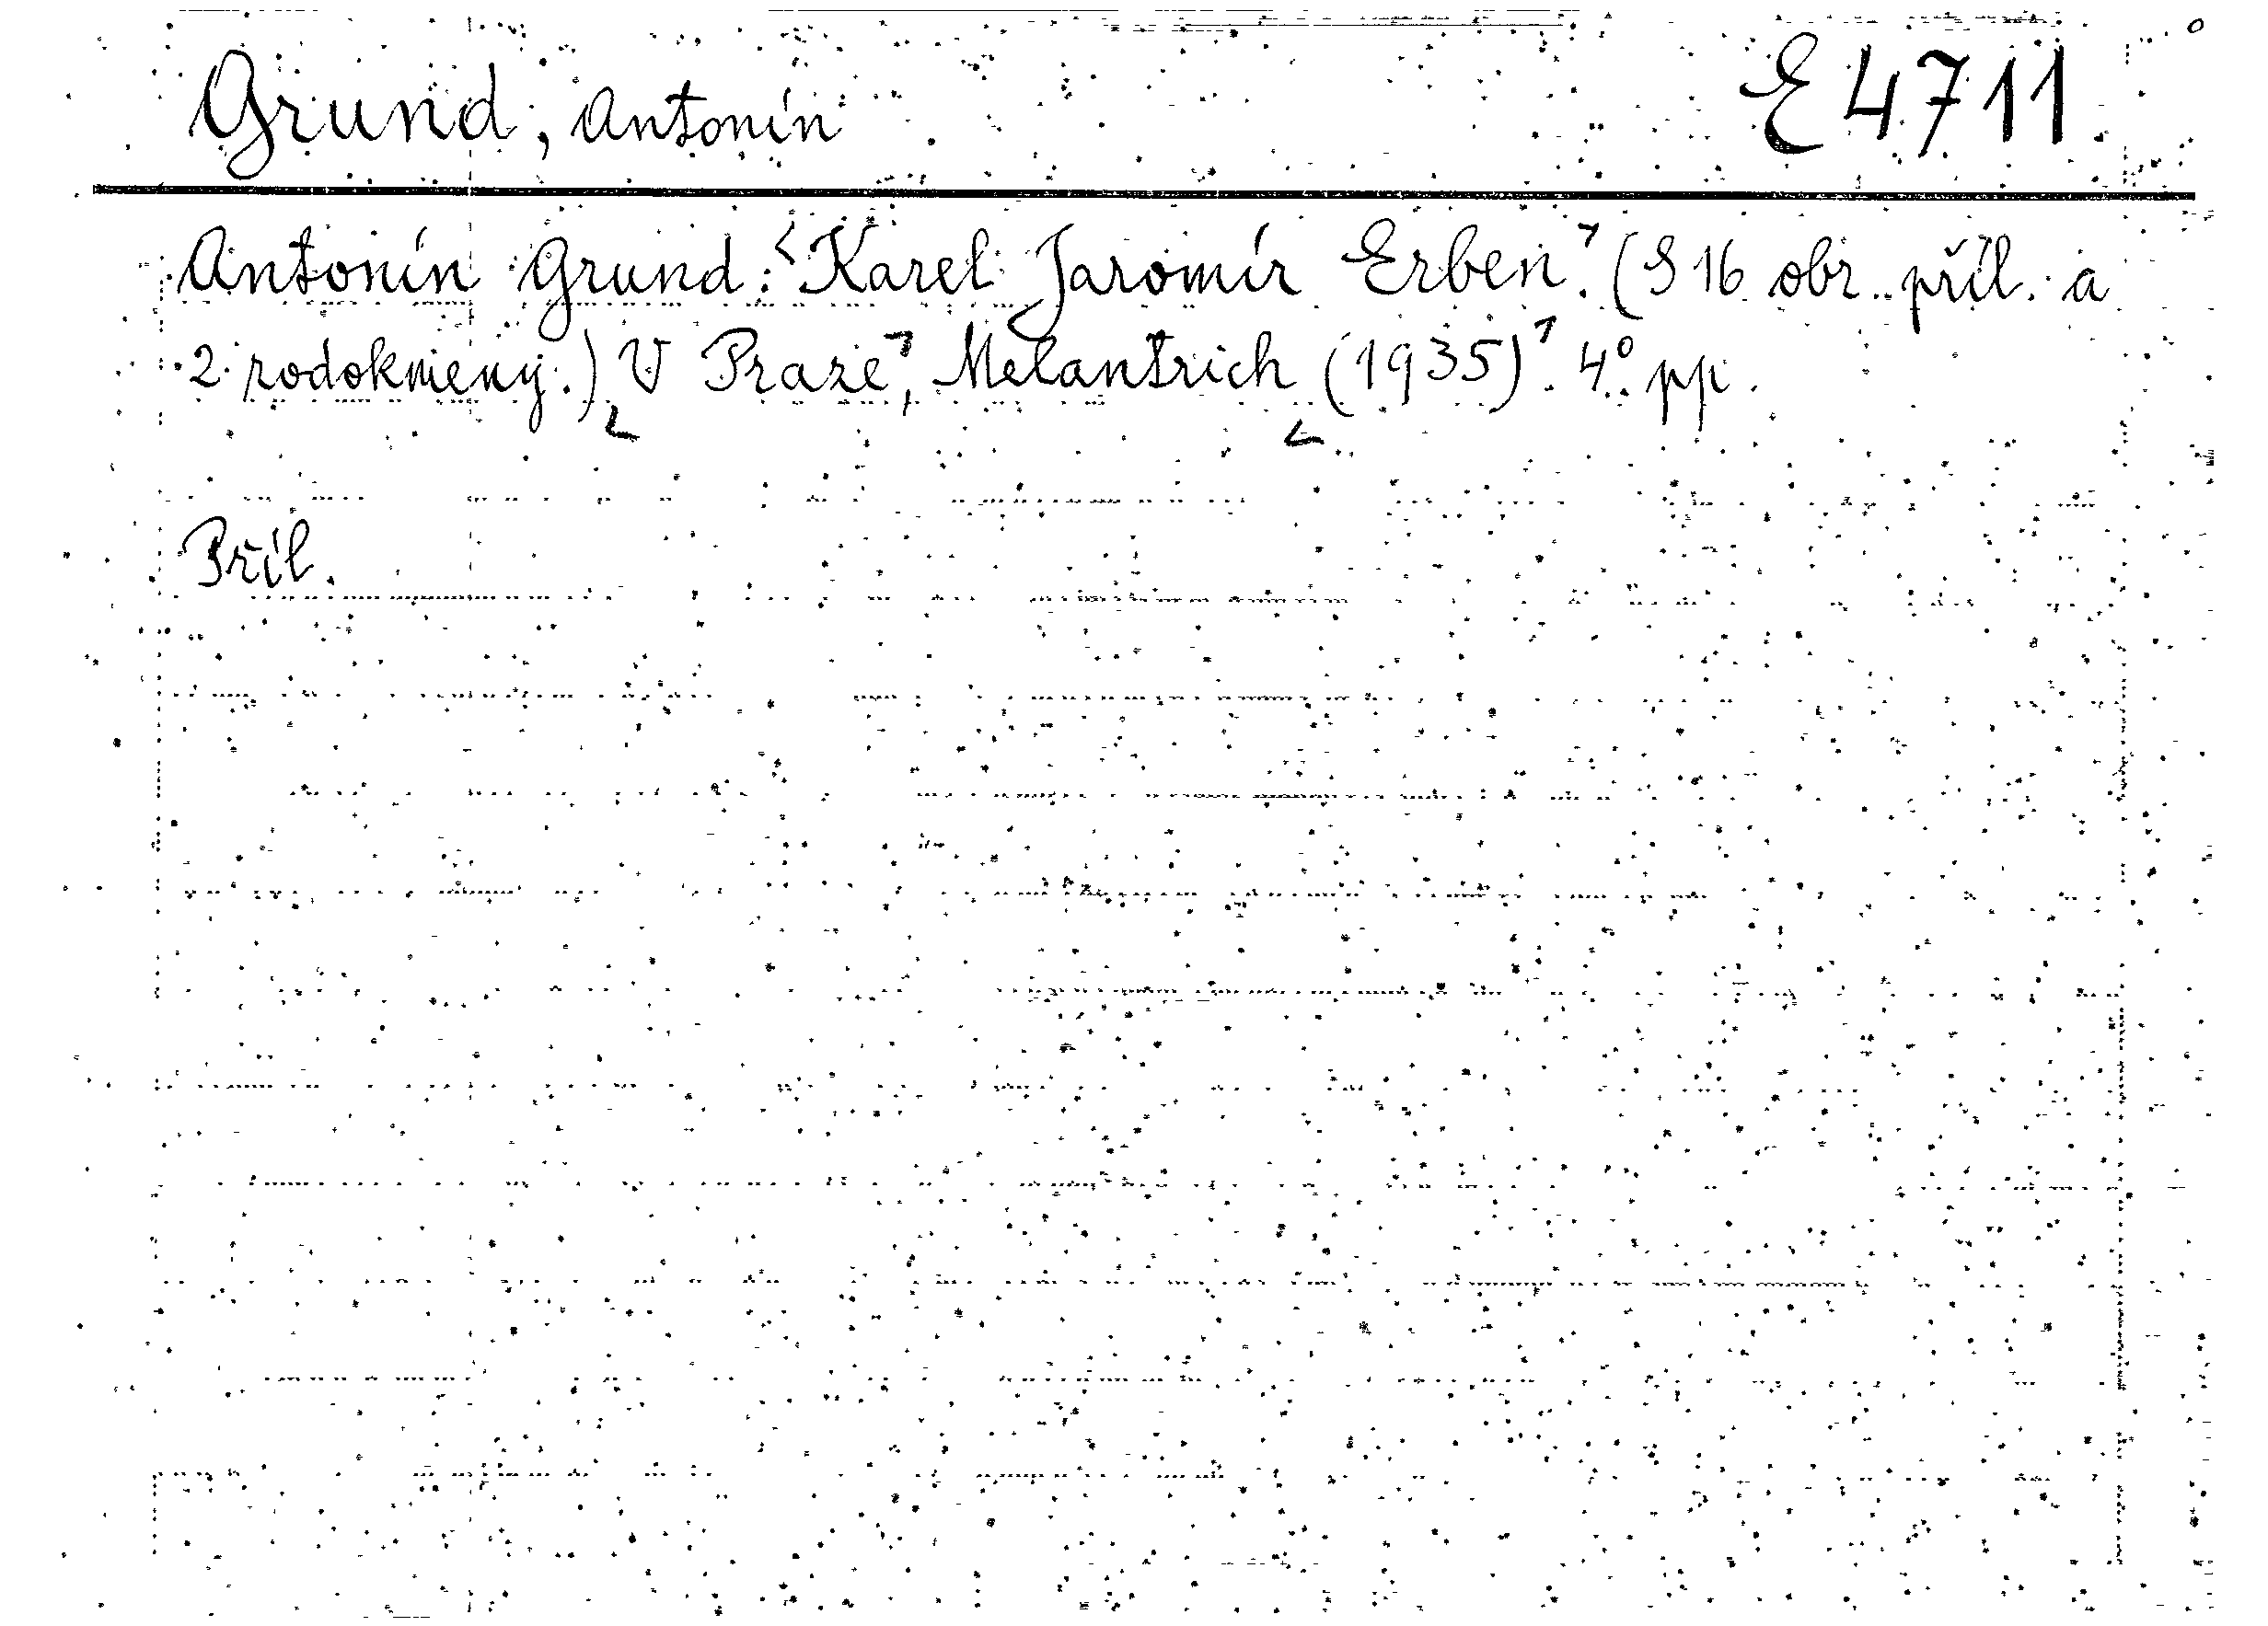 Grund, Antonín E 4711
Antonín Grund: Karel Jaromír Erben. (S 16 obr. příl. a
2 rodokmeny.) V Praze, Melantrich (1935). 4° pp.
Příl.